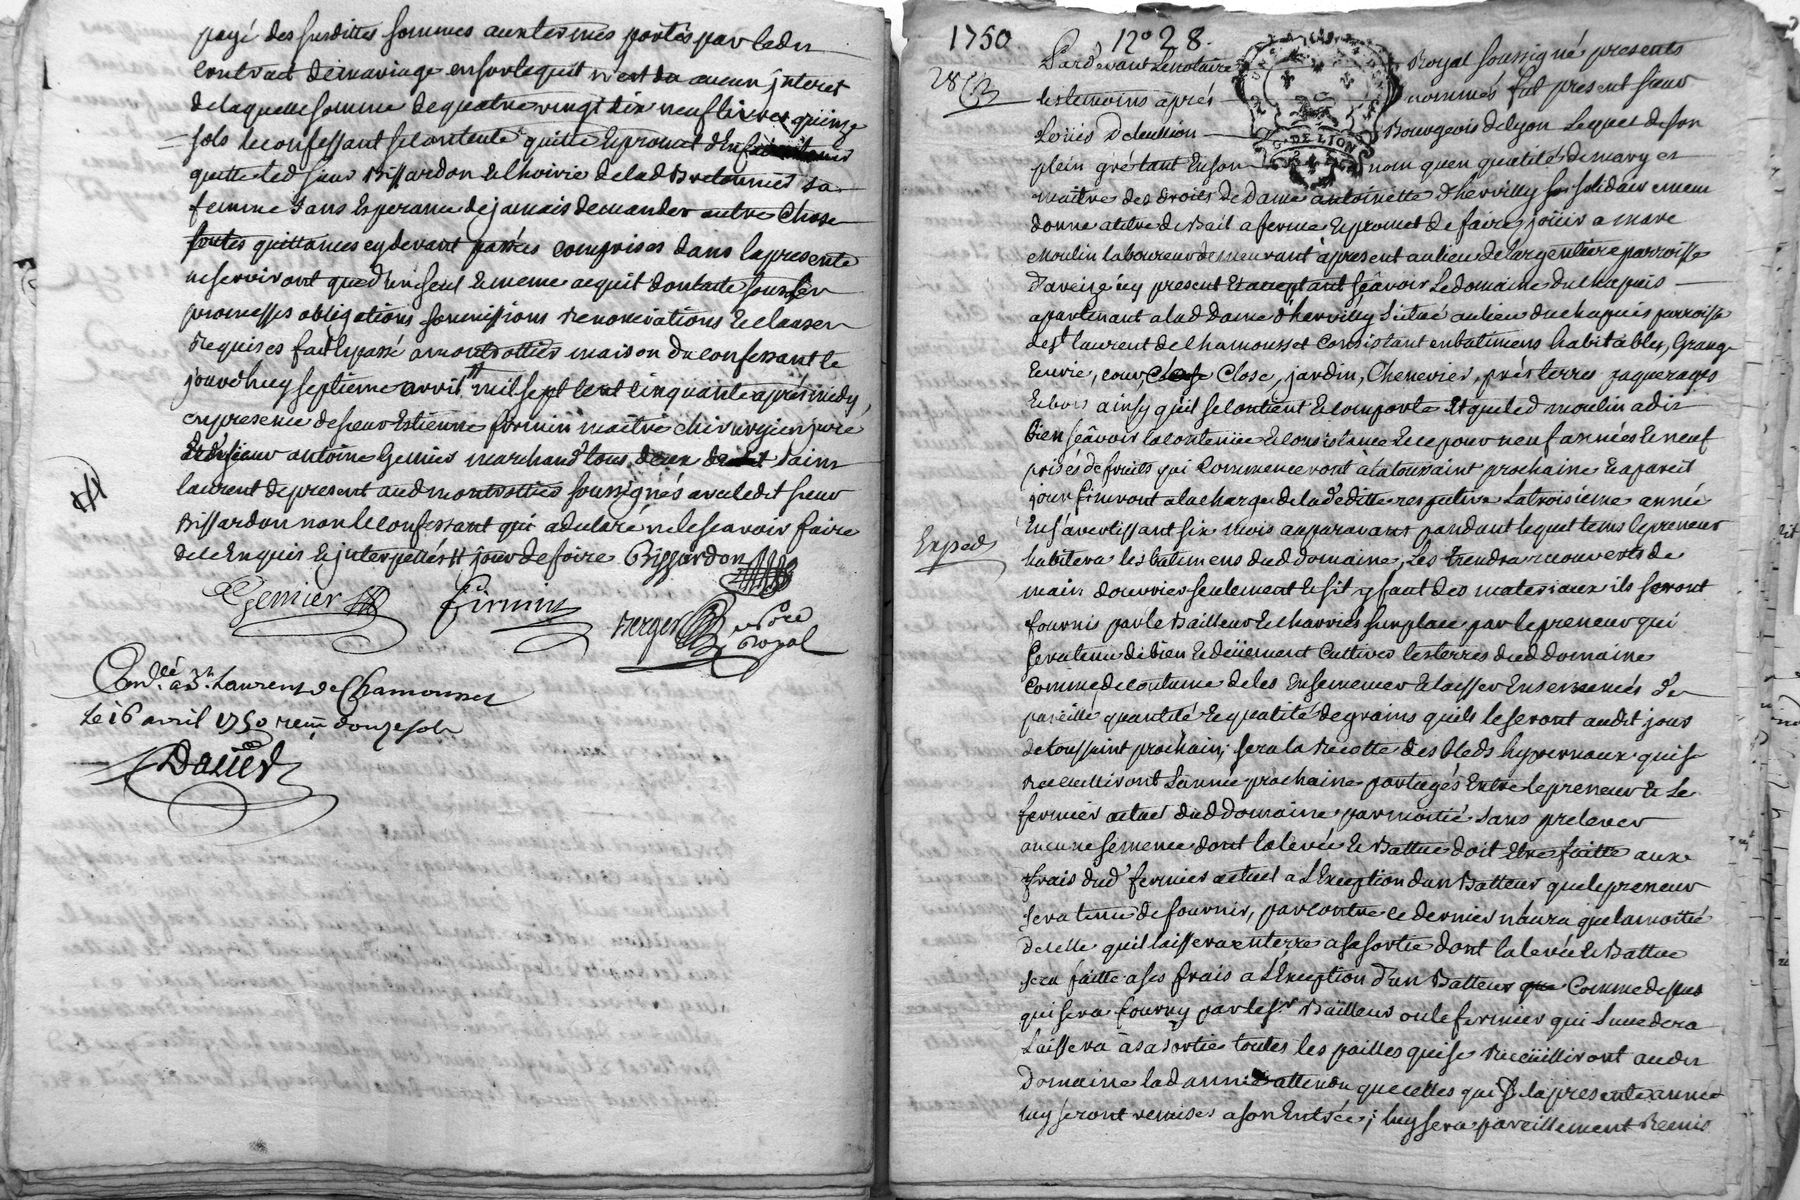 payé des susdittes sommes aux termes portés par led
contract de mariage en sorte quil n'est du aucun jnteret
de laquelle somme de quatre vingt dix neuf livres quinze
sols le confessant se contente quitte et promet d'En faire
quitte led sieur Bissardon et lhoirie de lad Bretonnier sa
femme sans Esperance de jamais demander autre Chose
toutes quittances cy devant passées comprises dans la presente
ne serviront que d'un seul et meme acquit dont acte sous les
promesses obligations soumissions Renonciations et clauses
Requises fait et passé a montrottier maison du confessant le
jourdhuy septieme avril mil sept cent cinquante après midy,
en presence de sieur Estienne firmin maitre chirurgien juré
et de sieur antoine Gemier marchand tous deux de saint
laurent de present aud montrottier soussignés avec ledit sieur
Bissardon non le confessant qui a declaré ne le scavoir faire
de ce Enquis et jnterpellés # jour de foire Bissardon
Gemier firmin
Berger no.re Royal
Con.lé a St. Laurens de Chamousset
Le 16 avril 1750 reçu douze sols
1750 no 28.
28
Pardevant le notaire Royal soussigné presents
les temoins après nommés fut present sieur
Louis Deleullion Bourgeois de Lyon Lequel de son
plein gré tant En son nom quen qualité de mary et
maitre des droits de Dame antoinette Dhervilly solidairement
donne a titre de Bail a ferme et promet de faire joüir a marc
Moulin laboureur demeurant à present au lieu de largentiere parroisse
d'aveize icy present et acceptant sçavoir Le domaine du chapuis
apartenant a lad dame d'hervilly situé au lieu du chapuis parroisse
de st laurent de chamousset consistant en batimens habitables, Grange
Ecurie, cour, Close, jardin, Chenevier, prés terres paquerages
et bois ainsy quil se contient et comporte Et que led moulin a dit
bien sçavoir la contenüe et consistance et ce pour neuf années et neuf
prises de fruits qui Commenceront à la toussaint prochaine et a pareil
jour finiront a la charge de la dedite respective La troisieme année
En s'avertissant six mois auparavant pendant lequel tems le preneur
Exped
habitera les batimens dud domaine, Les tiendra recouverts de
main douvrier seulement et sil y faut des materiaux ils seront
fournis par le Bailleur et charriés sur place par le preneur qui
sera tenu de bien et deüement cultiver les terres dud domaine
comme de coutume de les Ensemencer et laisser Ensemencés de
pareille quantité et qualité de grains quils le seront audit jour
de toussaint prochain; sera la recolte des bleds hyvernaux qui se
recueilliront Lannée prochaine partagés Entre le preneur et Le
fermier actuel dud domaine par moitié sans prelever
aucune semence dont la levée et Battue doit etre faitte aux
frais dud fermier actuel a L'Exception dun Batteur que le preneur
sera tenu de fournir, par contre ce dernier n'aura que la moitié
de celle quil laissera en terre a sa sortie dont la levée et Battue
sera faitte a ses frais a L'Exception d'un Batteur que Comme dessus
qui sera fourny par le sr. Bailleur ou le fermier qui succedera
Laissera à sa sortie toutes les pailles qui se recuëilliront audit
Domaine lad année attendu que celles qui la presente année
luy seront remises a son Entrée; luy sera pareillement Remis